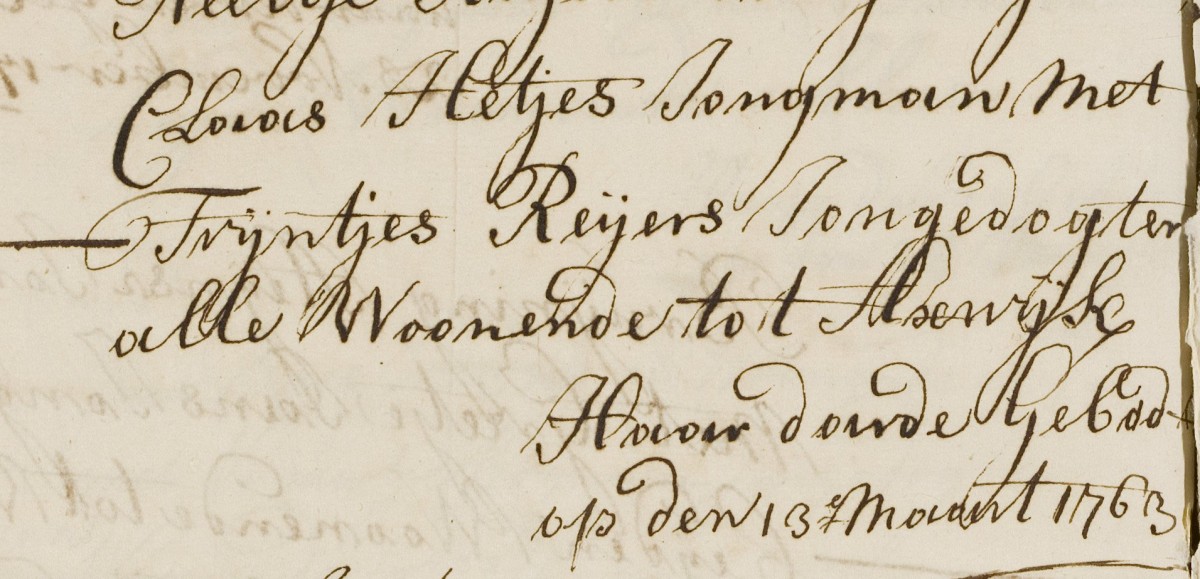 Claas Hetjes Jongman met
Trijntjes Reijers Jongedogter
alle Woonende tot Axwijk
Haar darde Gebodt
op den 13e Maart 1763